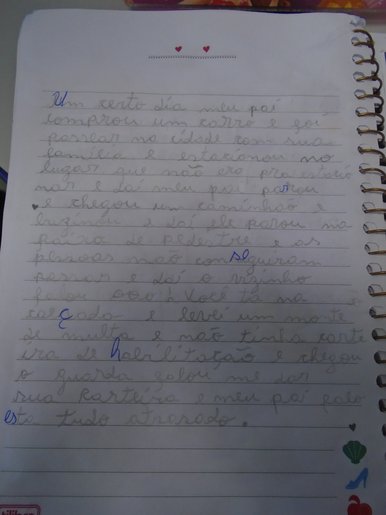 Um certo dia meu pai
comprou um carro e foi
passear na cidade com sua
familia e estacionou no
lugar que não era pra estacio
nar e daí meu pai parou
e chegou um caminhão e
buzinou e daí ele parou na
faixa de pedestre e as
pessoas não conseguiram
passar e daí o vizinho
falou você tá na
calçada e levei um monte
de multa e não tinha carte
ira de habilitação e chegou
o guarda falou me dar
sua karteira e meu pai falo
esta tudo atrasado.
tilibra